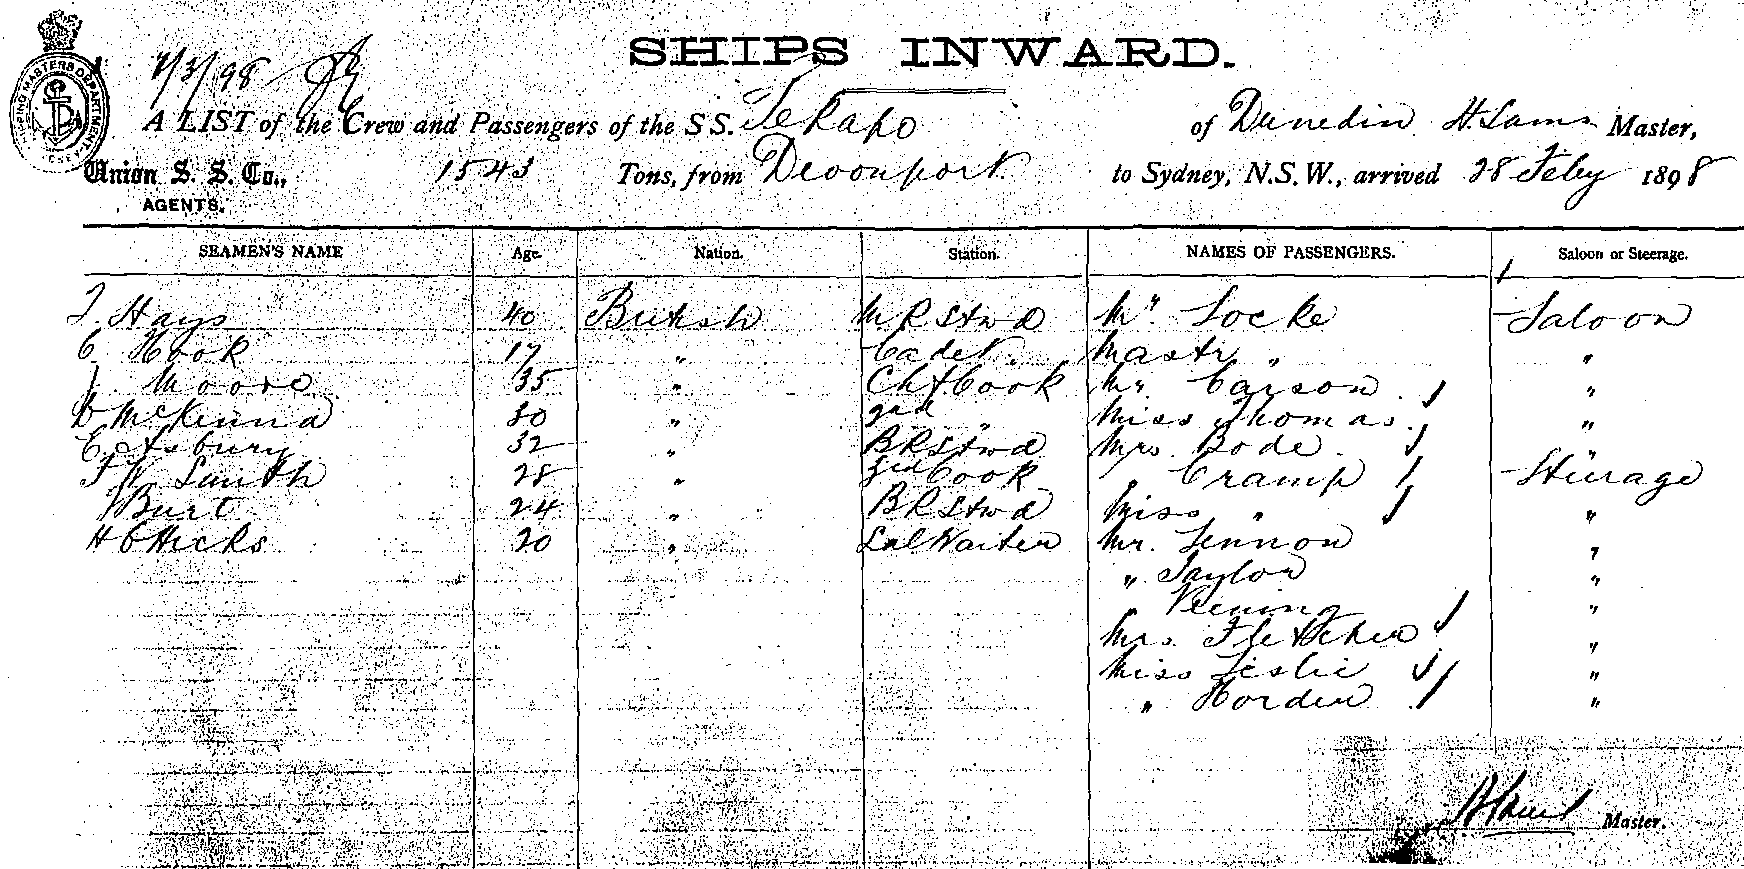 SHIPS INWARD.
1/3/98
A LIST of the Crew and Passengers of the S S. Tekapo of Dunedin Master,
Union S. S. Co., 1543 Tons, from Devonport to Sydney, N.S.W., arrived 28 Feby 1898
AGENTS.
SEAMEN'S NAME Age. Nation. Station. NAMES OF PASSENGERS. Saloon or Steerage.
Hays 40 British M R Stwd Mr Locke Saloon
C. Hook 17 " Cadet Mastr " "
J. Moore 35 " Chf Cook Mr Carson "
D McKenna 30 " 2nd " Miss Thomas "
C. Asbury 32 " B R Stwd Mrs Bode
F W Smith 28 " 3rd Cook " Cramp Steerage
Burt 24 " B R Stwd Miss " "
H C Hicks 20 " Sal Waiter Mr. Lennon "
" Taylor "
" "
Mrs. Fletcher "
Miss Leslie "
" Horden "
Master.